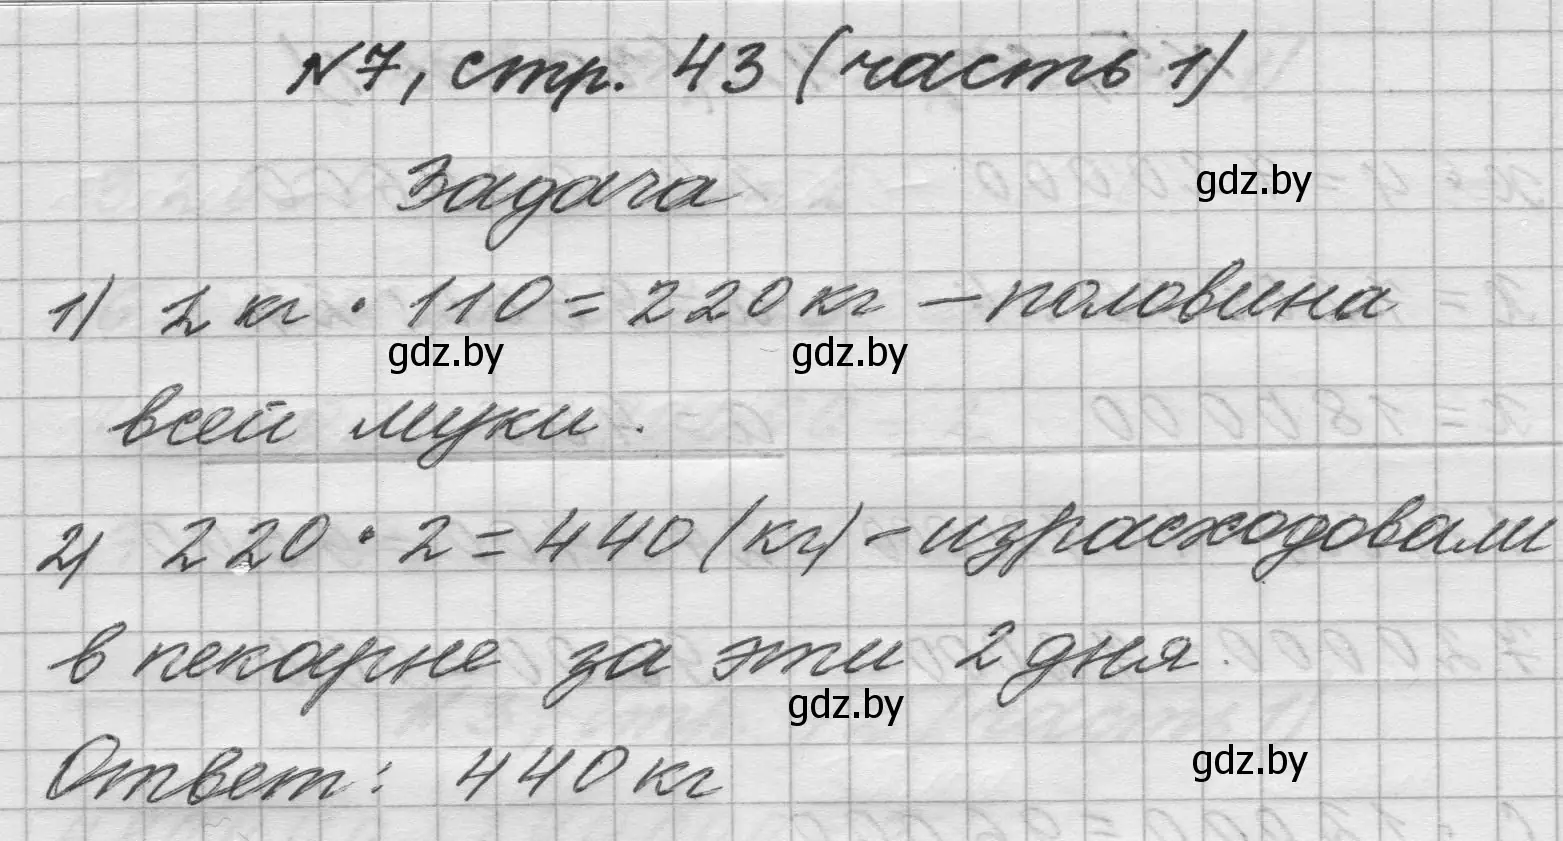 №7, стр. 43 (часть 1)
Задача
gdz.by
1) 2 кг · 110 = 220 кг – половина
gdz.by gdz.by
всей муки.
2) 220 · 2 = 440 (кг) – израсходовали
в пекарне за эти 2 дня.
gdz.by
Ответ: 440 кг
gdz.by